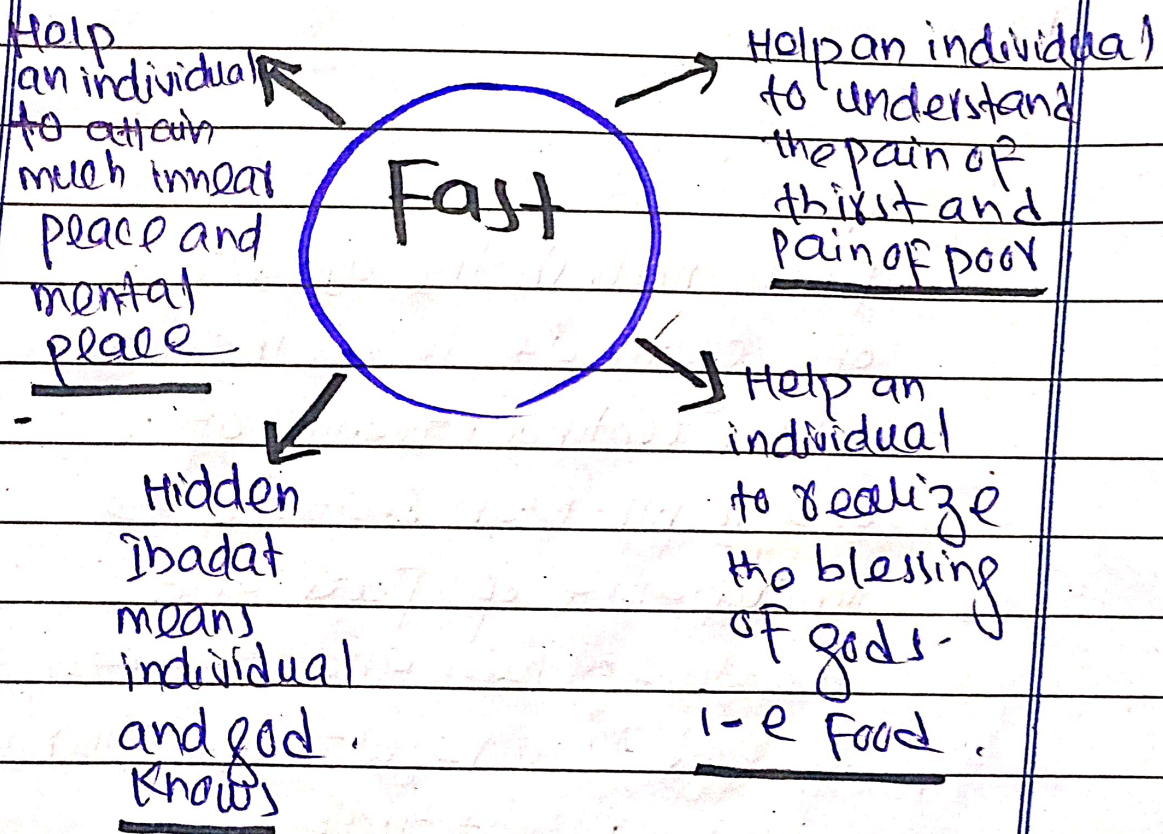 Fast
Help
an individual
to attain
much innear
peace and
mental
peace
Help an individual
to understand
the pain of
thirst and
pain of poor
Hidden
Ibadat
means
individual
and god.
Knows
Help an
individual
to realize
the blessing
of gods-
i-e Food.